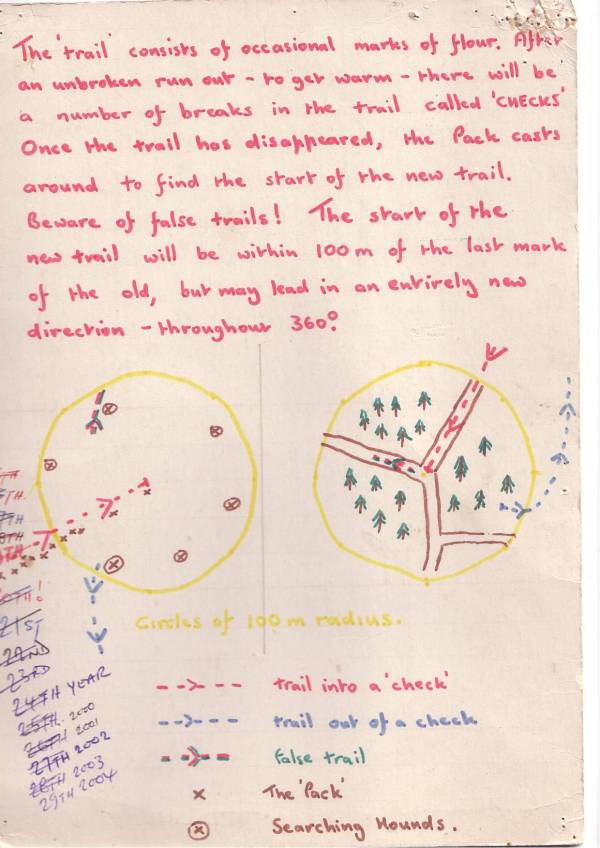 The 'trail' consists of occasional marks of flour. After
an unbroken run out - to get warm - there will be
a number of breaks in the trail called 'CHECKS'
Once the trail has disappeared, the Pack casts
around to find the start of the new trail.
Beware of false trails! The start of the
new trail will be within 100m of the last mark
of the old, but may lead in an entirely new
direction - throughout 360°.
Circles of 100m radius.
21ST
22ND
23RD
24TH YEAR
25TH 2000
26TH 2001
27TH 2002
28TH 2003
29TH 2004
trail into a 'check'
trail out of a check
false trail
The 'Pack'
Searching Hounds.